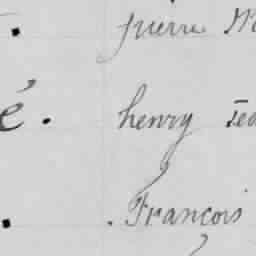 pierre
é. henry
. François